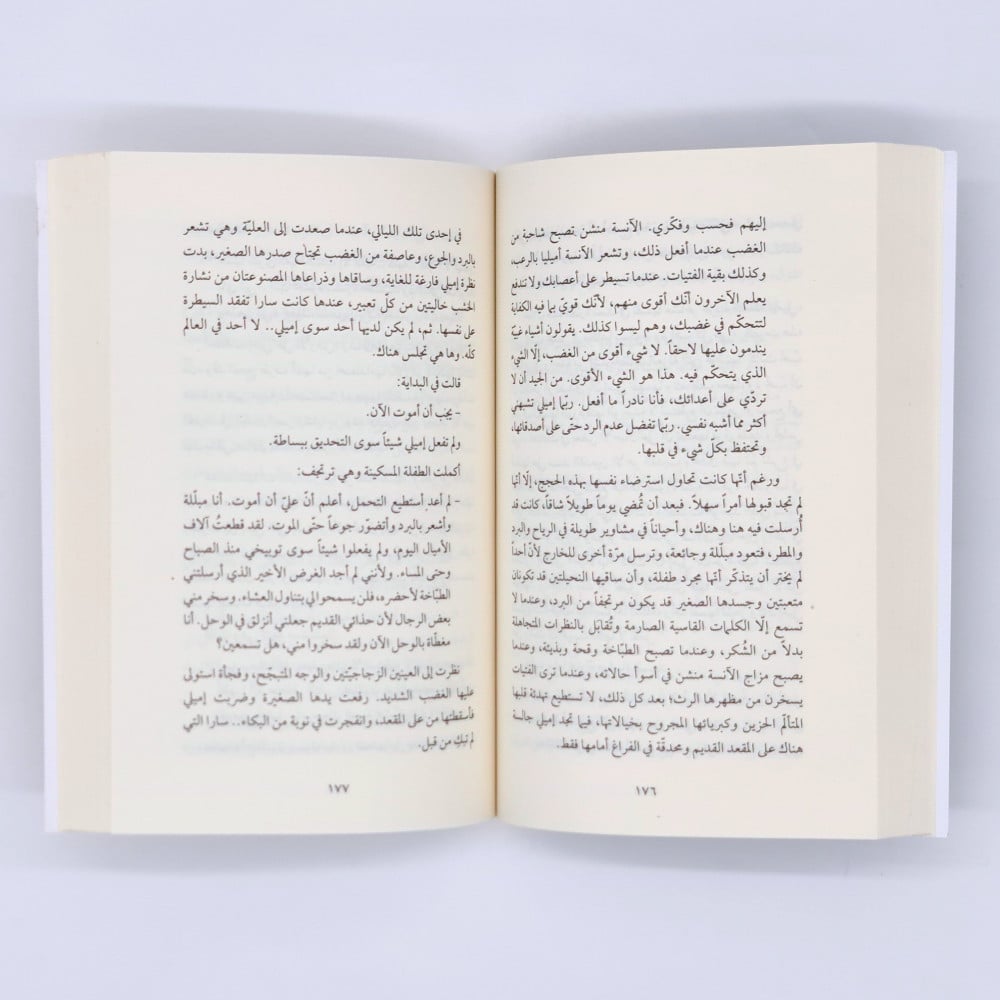 إليهم فحسب وفكّري. الآنسة منشن تصبح شاحبة من
الغضب عندما أفعل ذلك، وتشعر الآنسة أميليا بالرعب،
وكذلك بقية الفتيات. عندما تسيطر على أعصابك ولا تندفع
يعلم الآخرون أنّك أقوى منهم، لأنّك قويّ بما فيه الكفاية
لتتحكّم في غضبك، وهم ليسوا كذلك. يقولون أشياء غبيّة
يندمون عليها لاحقاً. لا شيء أقوى من الغضب، إلّا الشيء
الذي يتحكّم فيه. هذا هو الشيء الأقوى. من الجيد أن لا
تردّي على أعدائك، فأنا نادراً ما أفعل. ربّما إميلي تشبهني
أكثر مما أشبه نفسي. ربّما تفضل عدم الرد حتّى على أصدقائها،
وتحتفظ بكلّ شيء في قلبها.
ورغم أنّها كانت تحاول استرضاء نفسها بهذه الحجج، إلّا أنّها
لم تجد قبولها أمراً سهلاً. فبعد أن تُمضي يوماً طويلاً شاقاً، كانت قد
أُرسلت فيه هنا وهناك، وأحياناً في مشاوير طويلة في الرياح والبرد
والمطر، فتعود مبلّلة وجائعة، وترسل مرّة أخرى للخارج لأنّ أحداً
لم يختر أن يتذكّر أنّها مجرد طفلة، وأن ساقيها النحيلتين قد تكونان
متعبتين وجسدها الصغير قد يكون مرتجفاً من البرد، وعندما لا
تسمع إلّا الكلمات القاسية الصارمة وتُقابَل بالنظرات المتجاهلة
بدلاً من الشُكر، وعندما تصبح الطبّاخة وقحة وبذيئة، وعندما
يصبح مزاج الآنسة منشن في أسوأ حالاته، وعندما ترى الفتيات
يسخرن من مظهرها الرث؛ بعد كل ذلك، لا تستطيع تهدئة قلبها
المتألّم الحزين وكبريائها المجروح بخيالاتها، فيما تجد إميلي جالسة
هناك على المقعد القديم ومحدقّة في الفراغ أمامها فقط.
١٧٦
في إحدى تلك الليالي، عندما صعدت إلى العليّة وهي تشعر
بالبرد والجوع، وعاصفة من الغضب تجتاح صدرها الصغير، بدت
نظرة إميلي فارغة للغاية، وساقاها وذراعاها المصنوعتان من نشارة
الخشب خاليتين من كلّ تعبير، عندها كانت سارا تفقد السيطرة
على نفسها. ثم، لم يكن لديها أحد سوى إميلي.. لا أحد في العالم
كلّه. وها هي تجلس هناك.
قالت في البداية:
- يجب أن أموت الآن.
ولم تفعل إميلي شيئاً سوى التحديق ببساطة.
أكملت الطفلة المسكينة وهي ترتجف:
- لم أعد أستطيع التحمل، أعلم أنّ عليّ أن أموت. أنا مبلّلة
وأشعر بالبرد وأتضوّر جوعاً حتّى الموت. لقد قطعتُ آلاف
الأميال اليوم، ولم يفعلوا شيئاً سوى توبيخي منذ الصباح
وحتى المساء. ولأنني لم أجد الغرض الأخير الذي أرسلتني
الطبّاخة لأحضره، فلن يسمحوا لي بتناول العشاء. وسخر مني
بعض الرجال لأن حذائي القديم جعلني أنزلق في الوحل. أنا
مغطّاة بالوحل الآن ولقد سخروا مني، هل تسمعين؟
نظرت إلى العينين الزجاجيّتين والوجه المتبجّح، وفجأة استولى
عليها الغضب الشديد. رفعت يدها الصغيرة وضربت إميلي
فأسقطتها من على المقعد، وانفجرت في نوبة من البكاء.. سارا التي
لم تبكِ من قبل.
١٧٧